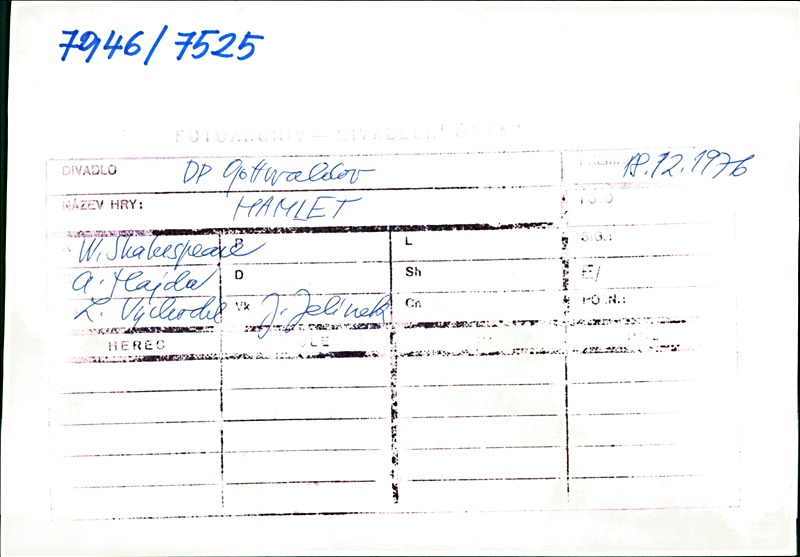 7946/7525
FOTOARCHIV — DIVADELNÍ ÚSTAV
DIVADLO DP Gottwaldov 18.12.1976
NÁZEV HRY: HAMLET FOTO
W. Shakespeare P L SIG.:
A. Hajda D Sh E/
L. Vychodil Vk J. Jelínek Cn PO.N.:
HEREC